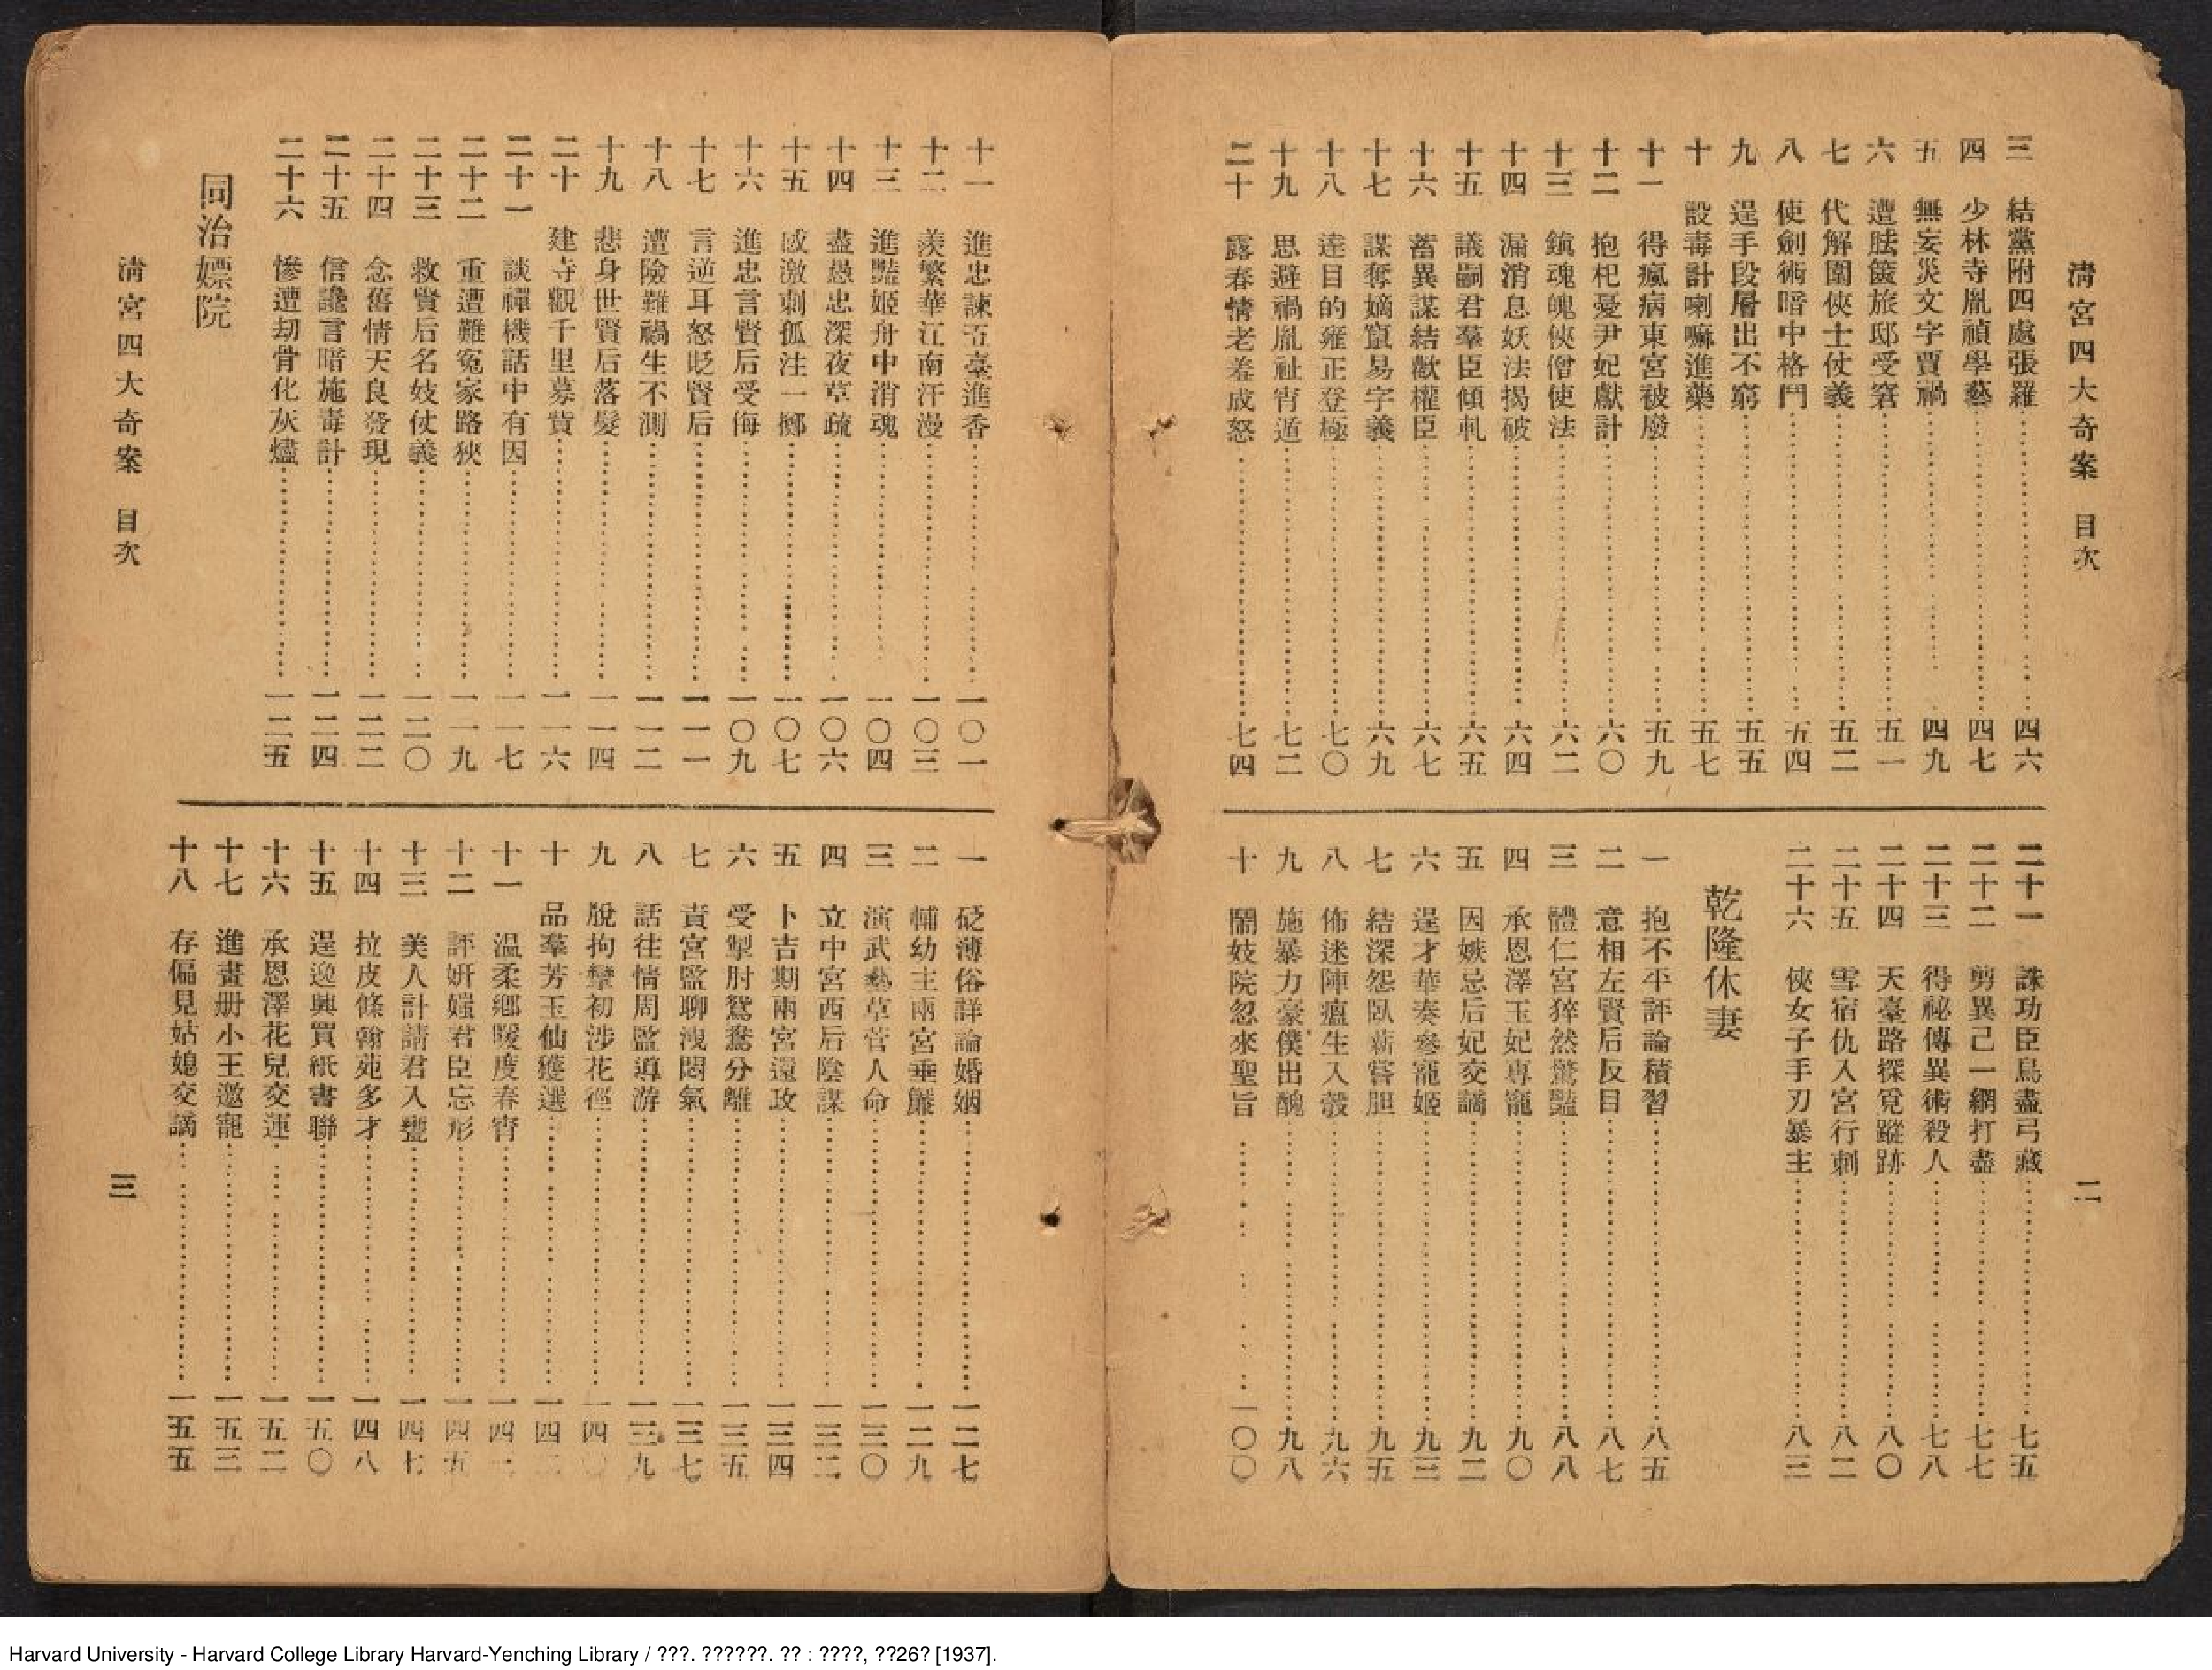 清宮四大奇案 目次 二
三 結黨附四處張羅 四六
四 少林寺胤禎學藝 四七
五 無妄災文字賈禍 四九
六 遭胠篋旅邸受窘 五一
七 代解圍俠士仗義 五二
八 使劍術暗中格鬥 五四
九 逞手段層出不窮 五五
十 設毒計喇嘛進藥 五七
十一 得瘋病東宮被廢 五九
十二 抱杞憂尹妃獻計 六〇
十三 鎮魂魄俠僧使法 六二
十四 漏消息妖法揭破 六四
十五 議嗣君羣臣傾軋 六五
十六 蓄異謀結歡權臣 六七
十七 謀奪嫡竄易字義 六九
十八 達目的雍正登極 七〇
十九 思避禍胤祉宵遁 七二
二十 露春情老羞成怒 七四
二十一 誅功臣鳥盡弓藏 七五
二十二 剪異己一網打盡 七七
二十三 得祕傳異術殺人 七八
二十四 天臺路探覓蹤跡 八〇
二十五 雪宿仇入宮行刺 八二
二十六 俠女子手刃暴主 八三
乾隆休妻
一 抱不平評論積習 八五
二 意相左賢后反目 八七
三 體仁宮猝然驚豔 八八
四 承恩澤玉妃專寵 九〇
五 因嫉忌后妃交謫 九二
六 逞才華奏參寵姬 九三
七 結深怨臥薪嘗胆 九五
八 佈迷陣瘟生入彀 九六
九 施暴力豪僕出醜 九八
十 鬧妓院忽來聖旨 一〇〇
十一 進忠諫五臺進香 一〇一
十二 羨繁華江南汗漫 一〇三
十三 進豔姬舟中消魂 一〇四
十四 盡愚忠深夜草疏 一〇六
十五 感激刺孤注一擲 一〇七
十六 進忠言賢后受侮 一〇九
十七 言逆耳怒貶賢后 一一一
十八 遭險難禍生不測 一一二
十九 悲身世賢后落髮 一一四
二十 建寺觀千里募貲 一一六
二十一 談禪機話中有因 一一七
二十二 重遭難冤家路狹 一一九
二十三 救賢后名妓仗義 一二〇
二十四 念舊情天良發現 一二二
二十五 信讒言暗施毒計 一二四
二十六 慘遭刧骨化灰燼 一二五
同治嫖院
一 砭薄俗詳論婚姻 一二七
二 輔幼主兩宮垂簾 一二九
三 演武藝草菅人命 一三〇
四 立中宮西后陰謀 一三二
五 卜吉期兩宮還政 一三四
六 受掣肘鴛鴦分離 一三五
七 責宮監聊洩悶氣 一三七
八 話往情周監導游 一三九
九 脫拘攣初涉花徑 一四〇
十 品羣芳玉仙獲選 一四二
十一 溫柔鄉暖度春宵 一四
十二 評妍媸君臣忘形 一四五
十三 美人計請君入甕 一四七
十四 拉皮條翰苑多才 一四八
十五 逞逸興買紙書聯 一五〇
十六 承恩澤花兒交運 一五二
十七 進畫册小王邀寵 一五三
十八 存偏見姑媳交謫 一五五
清宮四大奇案 目次 三
Harvard University - Harvard College Library Harvard-Yenching Library / ???. ??????. ?? : ????, ??26? [1937].